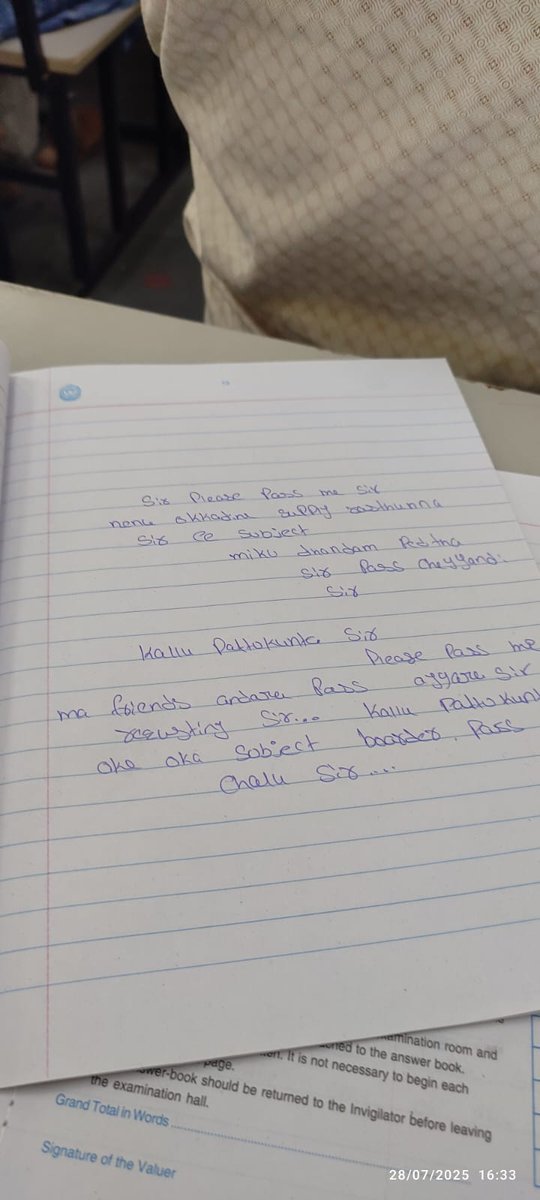 Sir Please Pass me Sir
nenu okkadine supply rasthunna
Sir ee subject
miku dhandam Peditha
Sir Pass cheyyandi
Sir
Kallu Pattokunta Sir
Please Pass me
ma friends andaru Pass ayyaru Sir
requsting Sir... Kallu Pattokunt
oka oka Subject boarder. Pass
Chalu Sir...
amination room and
to the answer book.
page. It is not necessary to begin each
wer-book should be returned to the Invigilator before leaving
the examination hall.
Grand Total in Words
Signature of the Valuer
28/07/2025 16:33